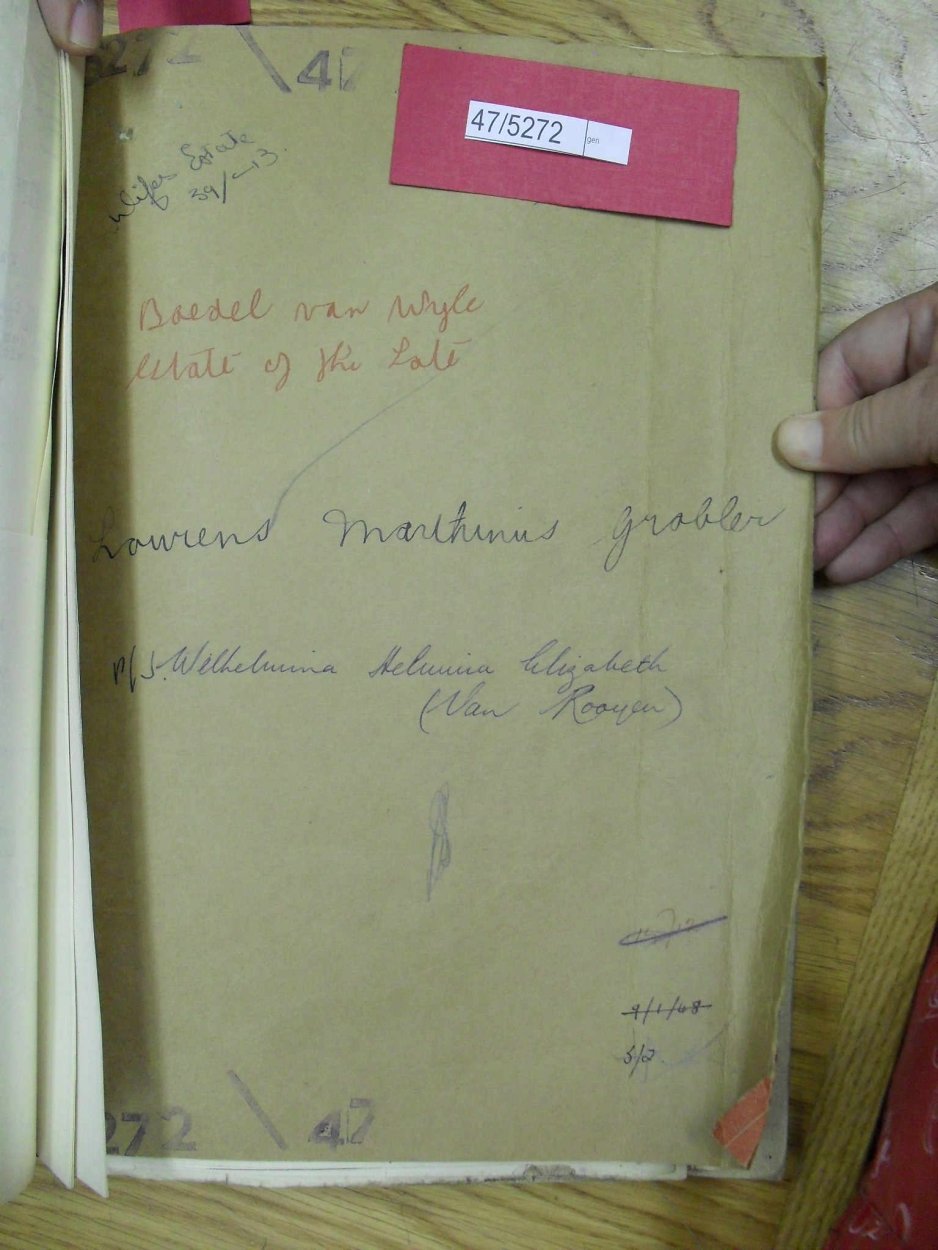 5272 \ 47
47/5272 gen
Wifes Estate
Boedel van Wyle
Estate of the Late
Lourens Marthinus Grobler
n/s. Wilhelmina Helmina Elizabeth
(Van Rooyen)
9/1/48
5/2
272 \ 47